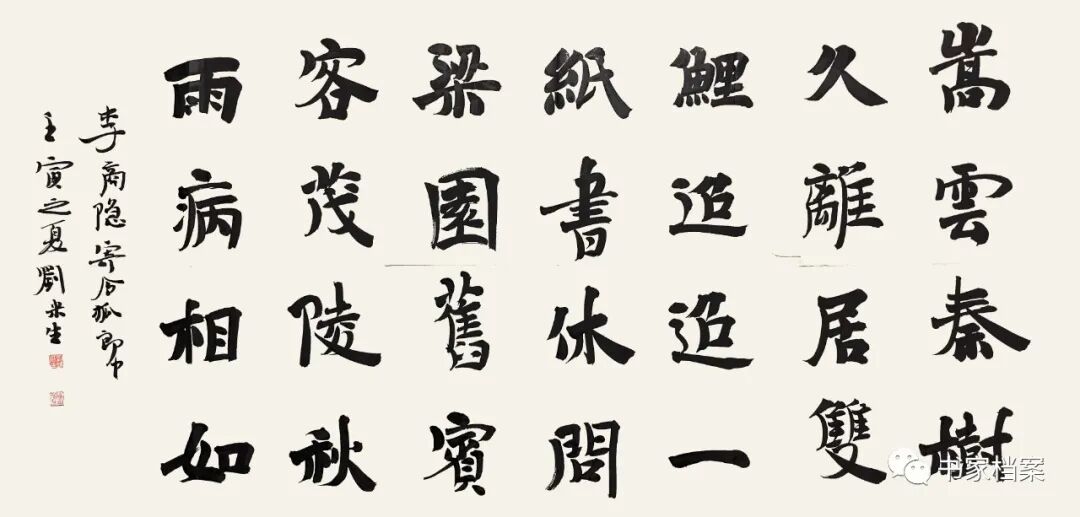 嵩雲秦樹
久離居雙
鯉迢迢一
紙書休問
梁園舊賓
客茂陵秋
雨病相如
李商隐寄令狐郎中
壬寅之夏劉米生
书家档案